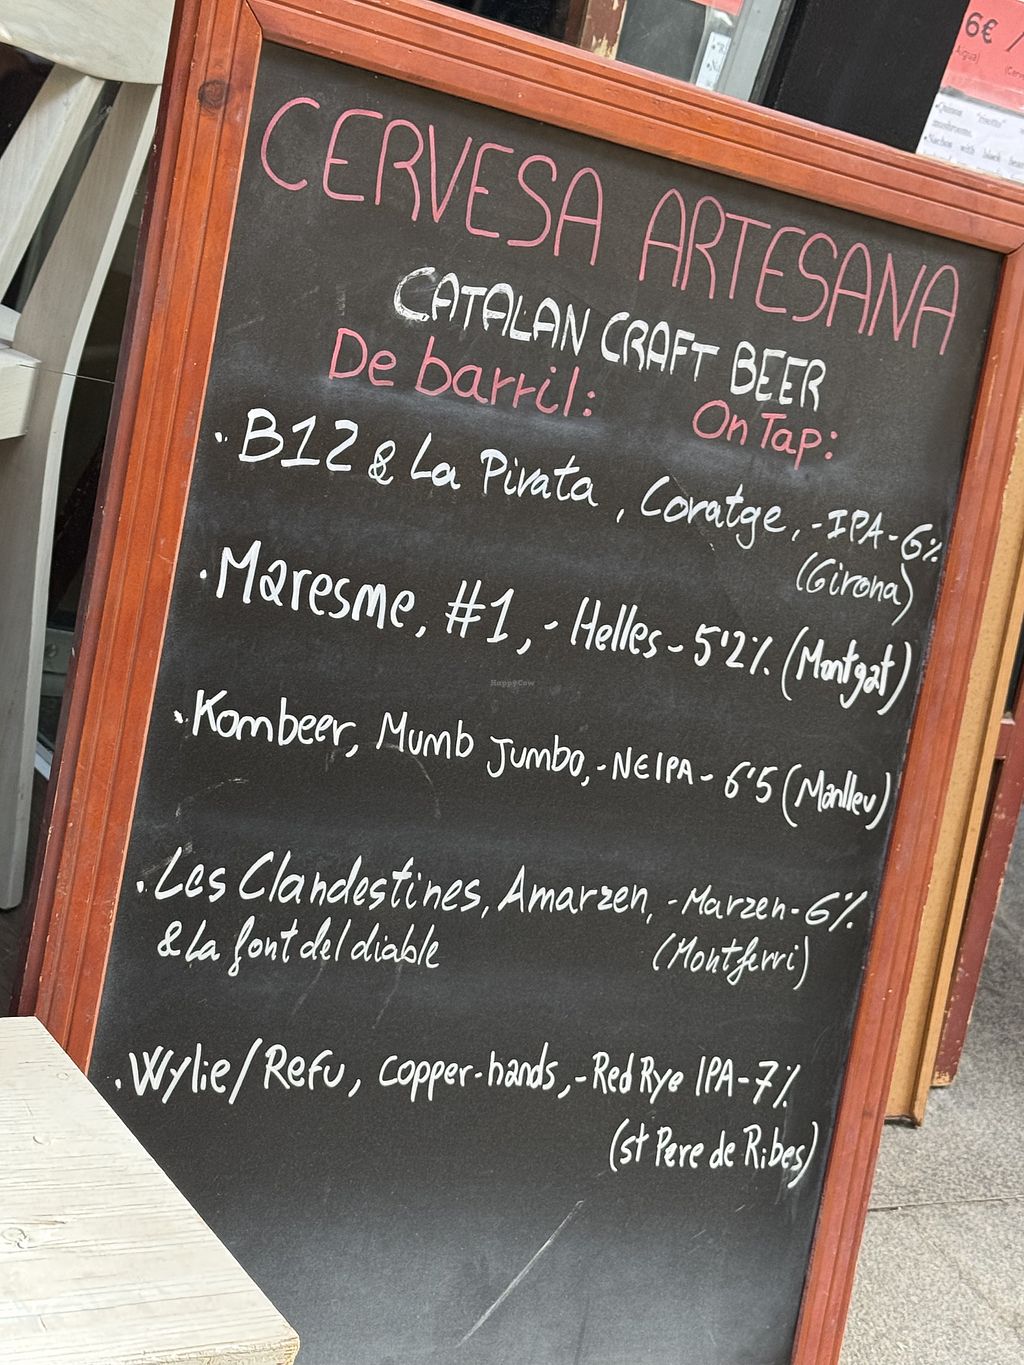 CERVESA ARTESANA
CATALAN CRAFT BEER
De barril: On Tap:
· B12 & La Pirata, Coratge, -IPA-6%
(Girona)
· Maresme, #1, - Helles - 5'2% (Montgat)
· Kombeer, Mumb Jumbo, -NEIPA- 6'5 (Manlleu)
· Les Clandestines, Amarzen, -Marzen-6%
& La font del diable (Montferri)
· Wylie/Refu, copper-hands, -Red Rye IPA-7%
(st Pere de Ribes)
6€ /
Aigua)
mushrooms.
HappyCow